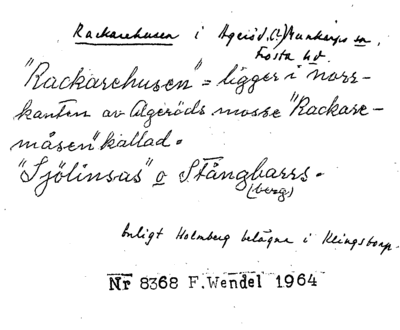 Rackarehusen i Ageröd (?) Munkarps sn,
Frosta hd.
"Rackarehusen" = ligger i norr-
kanten av Ageröds mosse "Rackare-
måsen" kallad.
"Sjölinsas" o Stångbarrs.
(berg)
Enligt Holmberg belägna i Klingstorp.
Nr 8368 F. Wendel 1964